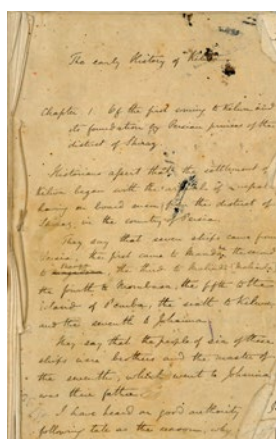 The early History of Kilwa
Chapter 1. Of the first coming to Kilwa and
its foundation by Persian princes of the
district of Shiraz.
Historians assert that the settlement of
Kilwa began with the arrival of a vessel
having on board men from the district of
Shiraz, in the country of Persia.
They say that seven ships came from
Persia: the first came to Manda, the second
to the third to
the fourth to Mombasa, the fifth to the
island of Pemba, the sixth to Kilwa,
and the seventh to Johanna.
They say that the people of six of these
ships were brothers and the master of
the seventh, which went to Johanna,
was their father.
I have heard on good authority
following tale as the reason, why